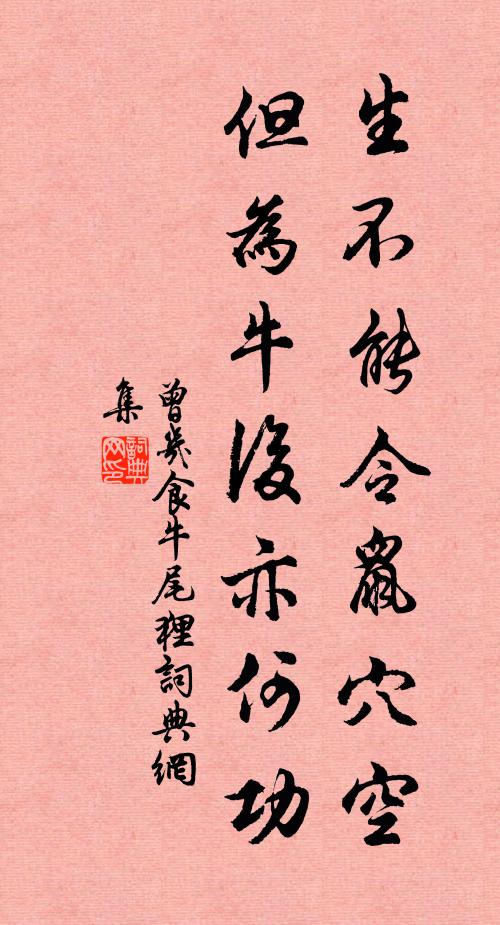 生不能令鼠穴空
但為牛後亦何功
曾幾食牛尾狸詞典網
集
詞典
网印